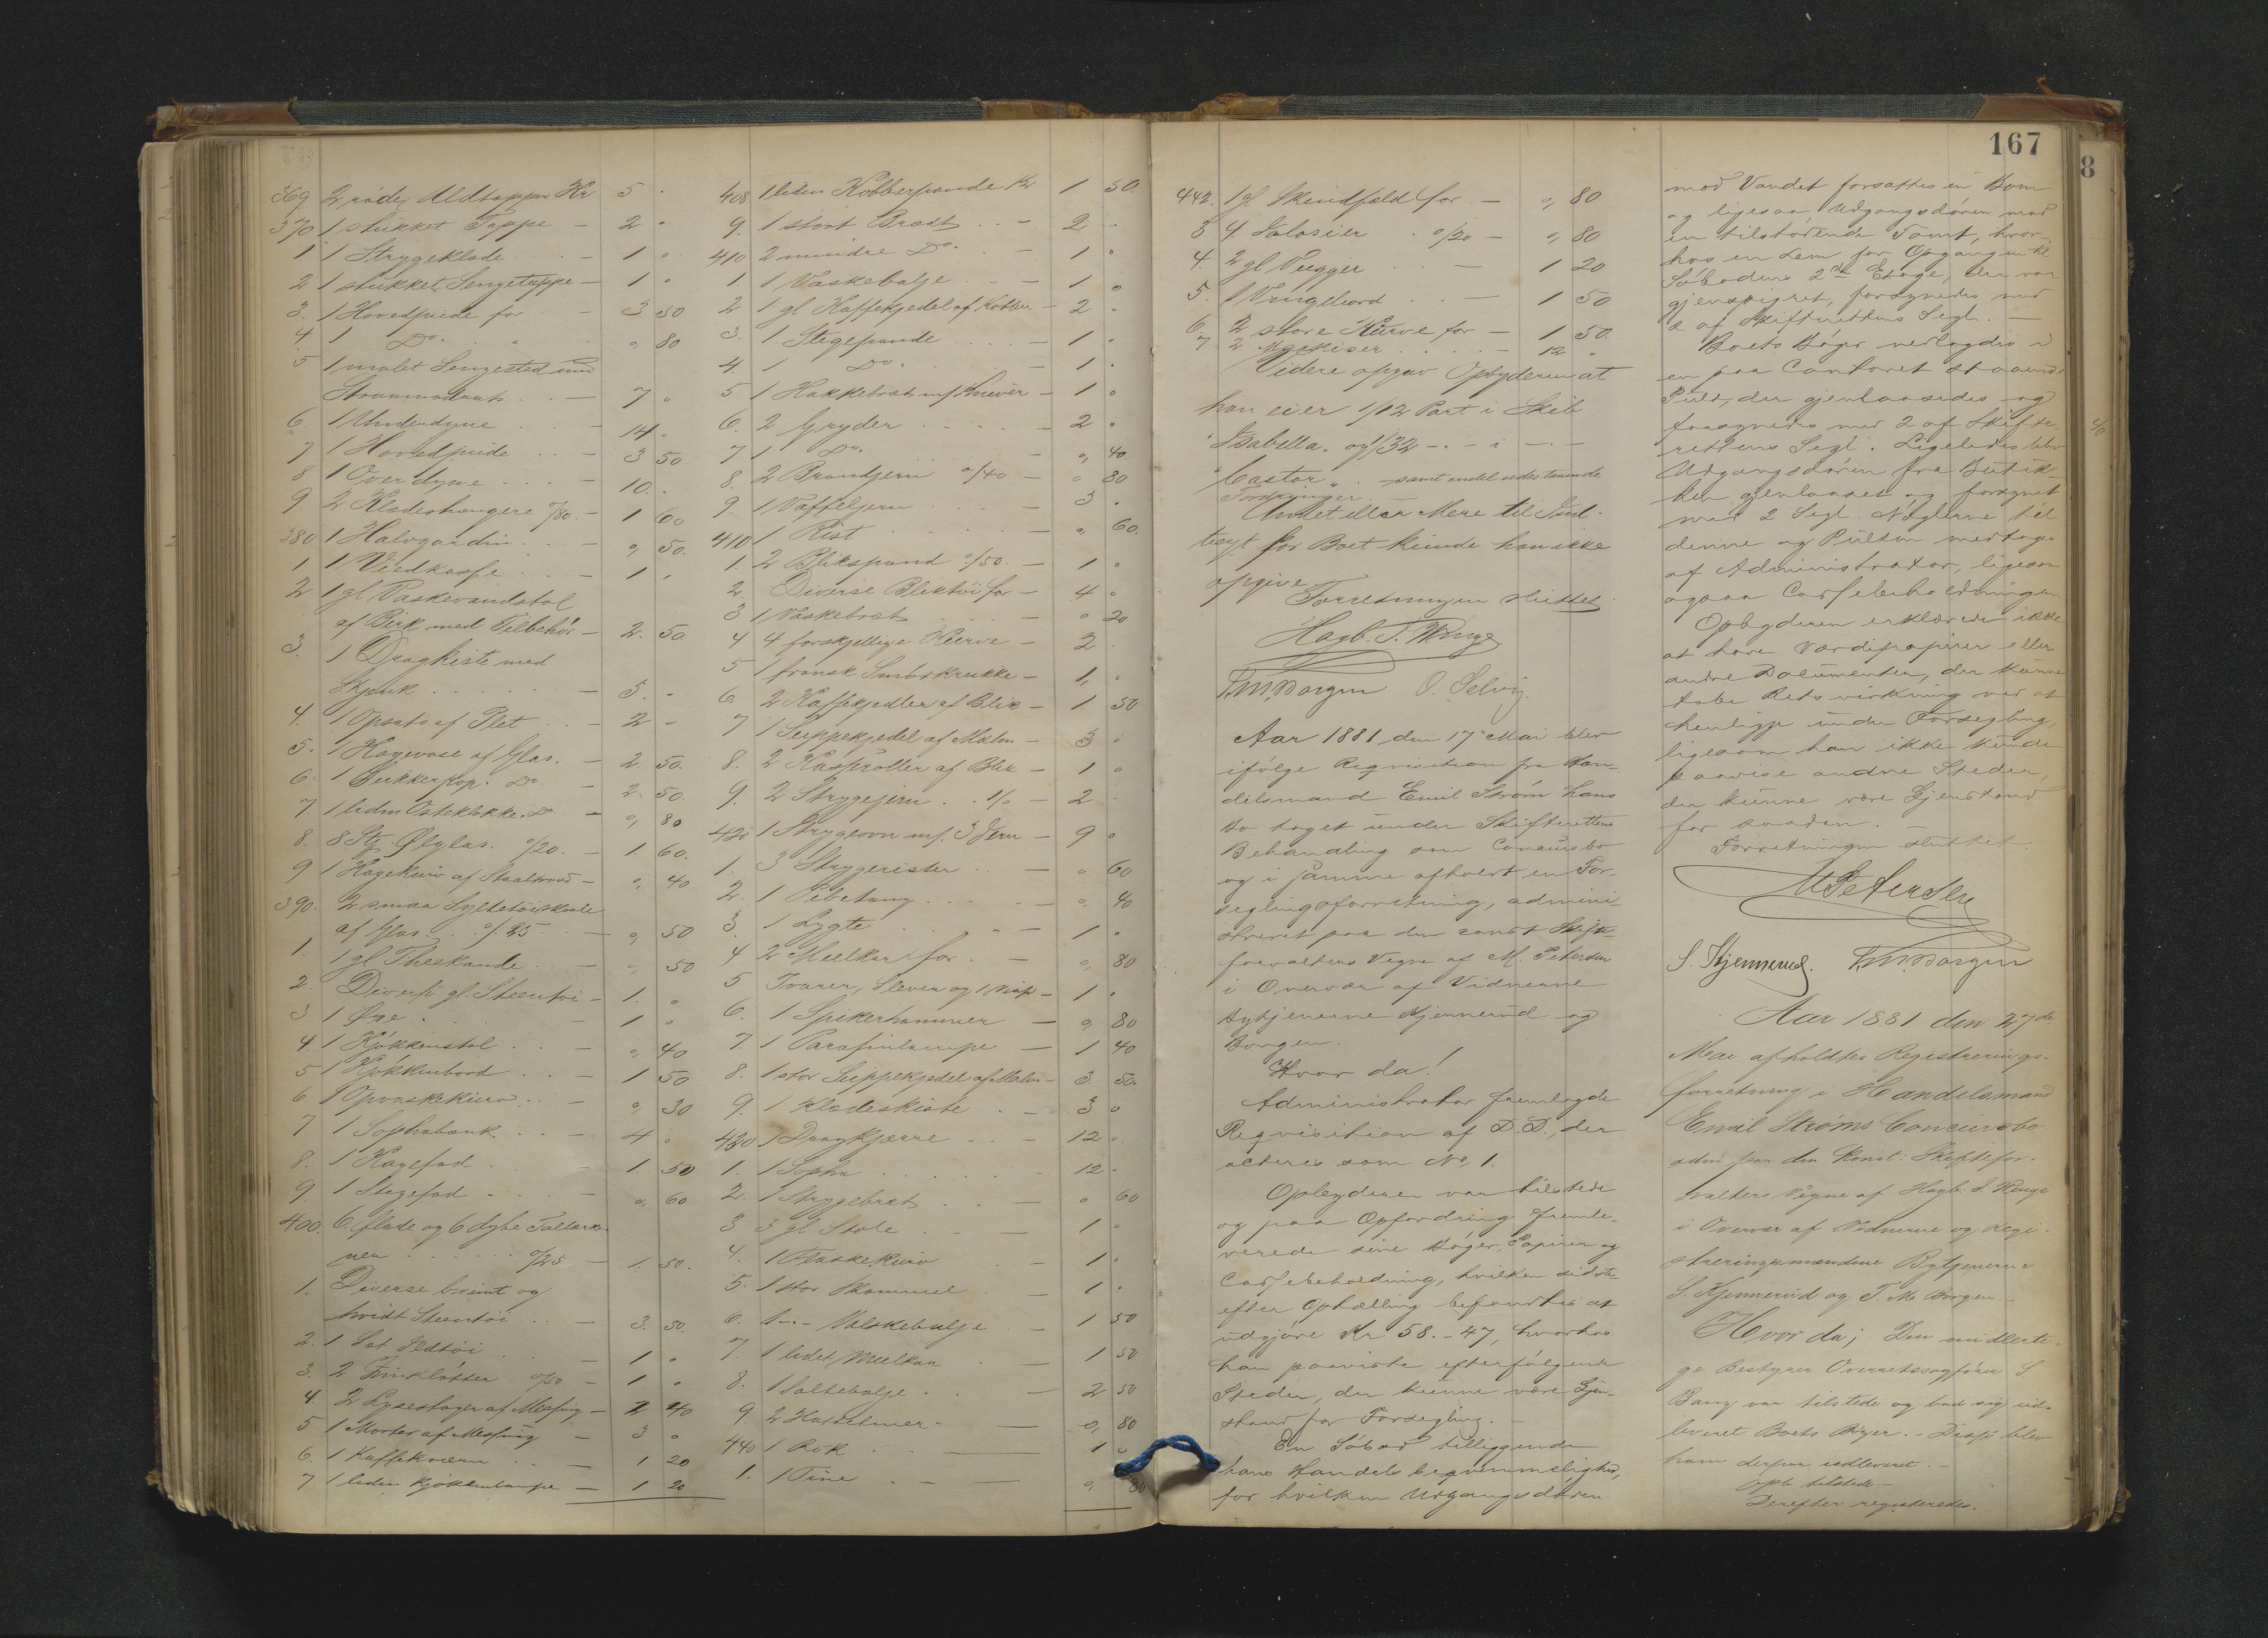 369 2 røde Uldtepper Kr 5 "
370 1 stukket Teppe – 2 "
1 1 Strygeklæde – 1 "
2 1 stukket Sengeteppe – 1 "
3. 1 Hovedpude for – 3 50
4 1 Do. " 80
5 1 malet Sengested med
Straamadrats – 7 "
6. 1 Underdyne 14 "
7 1 Hovedpude – 3 50
8 1 Overdyne – 10. "
9 2 Klædeshængere %80 – 1 60
380 1 Halvgardin – " 50.
1 1 Vedkasse – 1 "
2 1 gl Vaskevandstol
af Birk med Tilbehør – 2. 50
3. 1 Dragkiste med
Skjænk – 5. "
4. 1 Opsats af Plet – 2 –
5. 1 Havevase af Glas. – 2. 50.
6. 1 Sukkerkop. Do – 2. 50.
7. 1 liden Osteklokke Do – " 80
8. 8 Stk Ølglas. %20. – 1. 60.
9 1 Kagekurv af Staaltraad – " 40
390. 2 smaa Syltetøiskaale
af Glas. %25 – " 50
1. 1 gl Theekande – " 50
2. Diverse gl. Steentøi – 1. "
3 1 Øxe. – 1 "
4. 1 Kjøkkenstol – " 40
5 1 Kjøkkenbord – 1 50
6 1 Opvaskekurv – " 30
7 1 Sophabænk – 4 "
8. 1 Kagefad 1. 50
9. 1 Stegefad – " 60
400. 6 flade og 6 dybe Tallerk-
nen %25 – 1. 50.
1. Diverse brunt og
hvidt Steentøi – 3. 50.
2. 1 Sat Ildtøi – 1 "
3. 2 %50 – 1 "
4. 2 Lysestager af Messing – 2 40
5 1 Morter af Messing – 3 "
6. 1 Kaffekværn – 1 20
7 1 liden Kjøkkenlampe – 1 20
408 1 liden Kobberpande Kr 1 50.
9. 1 stort Bræt – 2 "
410 2 mindre Do. – 1 "
1 1 Vaskebalje – 1 "
2 1 gl Kaffekjedel af Kobber – 2 "
3. 1 Stegepande – 1 "
4. 1 Do. – 1 "
5 1 Hakkebræt m/ Kniver – 1 "
6. 2 Gryder – 2 "
7 1 Do. – " 40
8. 2 Brandjern %40 – " 80
9. 1 Vaffeljern – 3 "
410 1 Rist – " 60.
1. 2 Blikspand %50. – 1 "
2. Diverse Bliktøi for – 4 "
3 1 Vaskebræt – " 20
4 4 forskjellige Kurve – 2
5 1 fransk Smørkrukke – 1, "
6. 2 Kaffekjedler af Blik – 1 50
7 1 Suppekjedel af Malm – 3 "
8. 2 Kasseroller af Blik – 1 "
9. 2 Strygejern – 2 "
420 1 Strygeovn m/ 3 Jern – 9 "
1. 3 Strygerister – " 60
2. 1 Pibetang – " 40
3. 1 Lygte – 1 "
4 2 Meelkar for – " 80
5 Tvarer, Slever og 1 Visp – 1 "
6. 1 Spikerhammer – " 80
7. 1 Parafinlampe – 1 40
8. 1 stor Suppekjedel af Malm – 3 50.
9. 1 Klædeskiste – 3 "
430 1 Dragkjærre – 12 "
1. 1 Sopha 12 "
2. 1 Strygebræt – " 60
3 3 gl Stole – 1 "
4. 1 Flaskekurv – 1 "
5. 1 stor Skammel – 1 "
6. 1 –"– Vaskebalje – 1 50
7. 1 lidet Meelkar – 1 50
8. 1 Saltebalje – 2 50
9 2 – " 80
440 1 Rok – 1 "
1. 1 Tine – " 80
167
8
442. 1 gl Skindfæld for – " 80
3 4. Salosier %20 – " 80
4. 2 gl Vugger – 1 20
5. 1 Vingebord – 1 50
6. 2 store Kurve for – 1 50.
7. 2 – 12 "
Videre opgav Opbyderen at
han eier 1/12 Part i Skib
"Isabella" og 1/32 –"– i –"–
"Castor" – samt endel udestaaende
Fordringer
Andet eller Mere til Ind-
tægt for Boet kunde han ikke
opgive.
Forretningen sluttet
Hagb. T. Winge
T. M. Borgen O. Selvig.
Aar 1881 den 17de Mai blev
ifølge Reqvisition fra Han-
delsmand Emil Strøm hans
Bo taget under Skifterettens
Behandling som Concursbo
og i samme afholdt en For-
seglingsforretning, admini-
streret paa den const Skifte-
forvalters Vegne af M. Petersen
i Overvær af Vidnerne
Bytjenerne Kjennerud og
Borgen.
Hvor da!
Administrator fremlagde
Reqvisition af D. D., der
acteres som No, 1.
Opbyderen var tilstede
og paa Opfordring fremle-
verede sine Bøger, Papirer og
Cassebeholdning, hvilken sidste
efter Optælling befandtes at
udgjøre Kr 58.–47, hvorhos
han paaviste efterfølgende
Steder, der kunne være Gjen-
stand for Forsegling. –
En Søbod tilliggende
hans Handels beqvemmelighed,
for hvilken Udgangsdøren
mod Vandet forsattes en Bom
og ligesaa Udgangsdøren mod
en tilstødende Tomt, hvor-
hos en Lem for Opgangen til
Søbodens 2den Etage, der var
gjenspigret, forsynedes med
2 af Skifterettens Segl. –
Boets Bøger nedlagdes i
en paa Contoret staaende
Pult, der gjenlaasedes og
forsynedes med 2 af Skifte-
rettens Segl. Ligeledes blev
Udgangsdøren fra Butik-
ken gjenlaaset og forsynet
med 2 Segl. Nøglerne til
denne og Pulten medtoges
af Administrator, ligesom
ogsaa Cassebeholdningen.
Opbyderen erklærede ikke
at have Værdipapirer eller
andre Documenter, der kunne
tabe Retsvirkning ved at
henligge under Forsegling,
ligesom han ikke kunde
paavise andre Steder,
der kunne være Gjenstand
for saadan. –
Forretningen sluttet.
M Petersen
S. Kjennerud. T. M. Borgen
Aar 1881 den 27de
Mai afholdtes Registrerings-
forretning i Handelsmand
Emil Strøms Concursbo
adm paa den Konst. Skiftefor-
valters Vegne af Hagb. T. Winge
i Overvær af Vidnerne og Regi-
streringsmændene Bytjenerne
S. Kjennerud og T. M Borgen.
Hvor da; Den midlerti-
ge Bestyrer Overretssagfører S
Bang var tilstede og bad sig ud-
leveret Boets Bøger. – Disse blev
ham derpaa udleveret. –
Opb. tilstede –
Derefter registreredes.